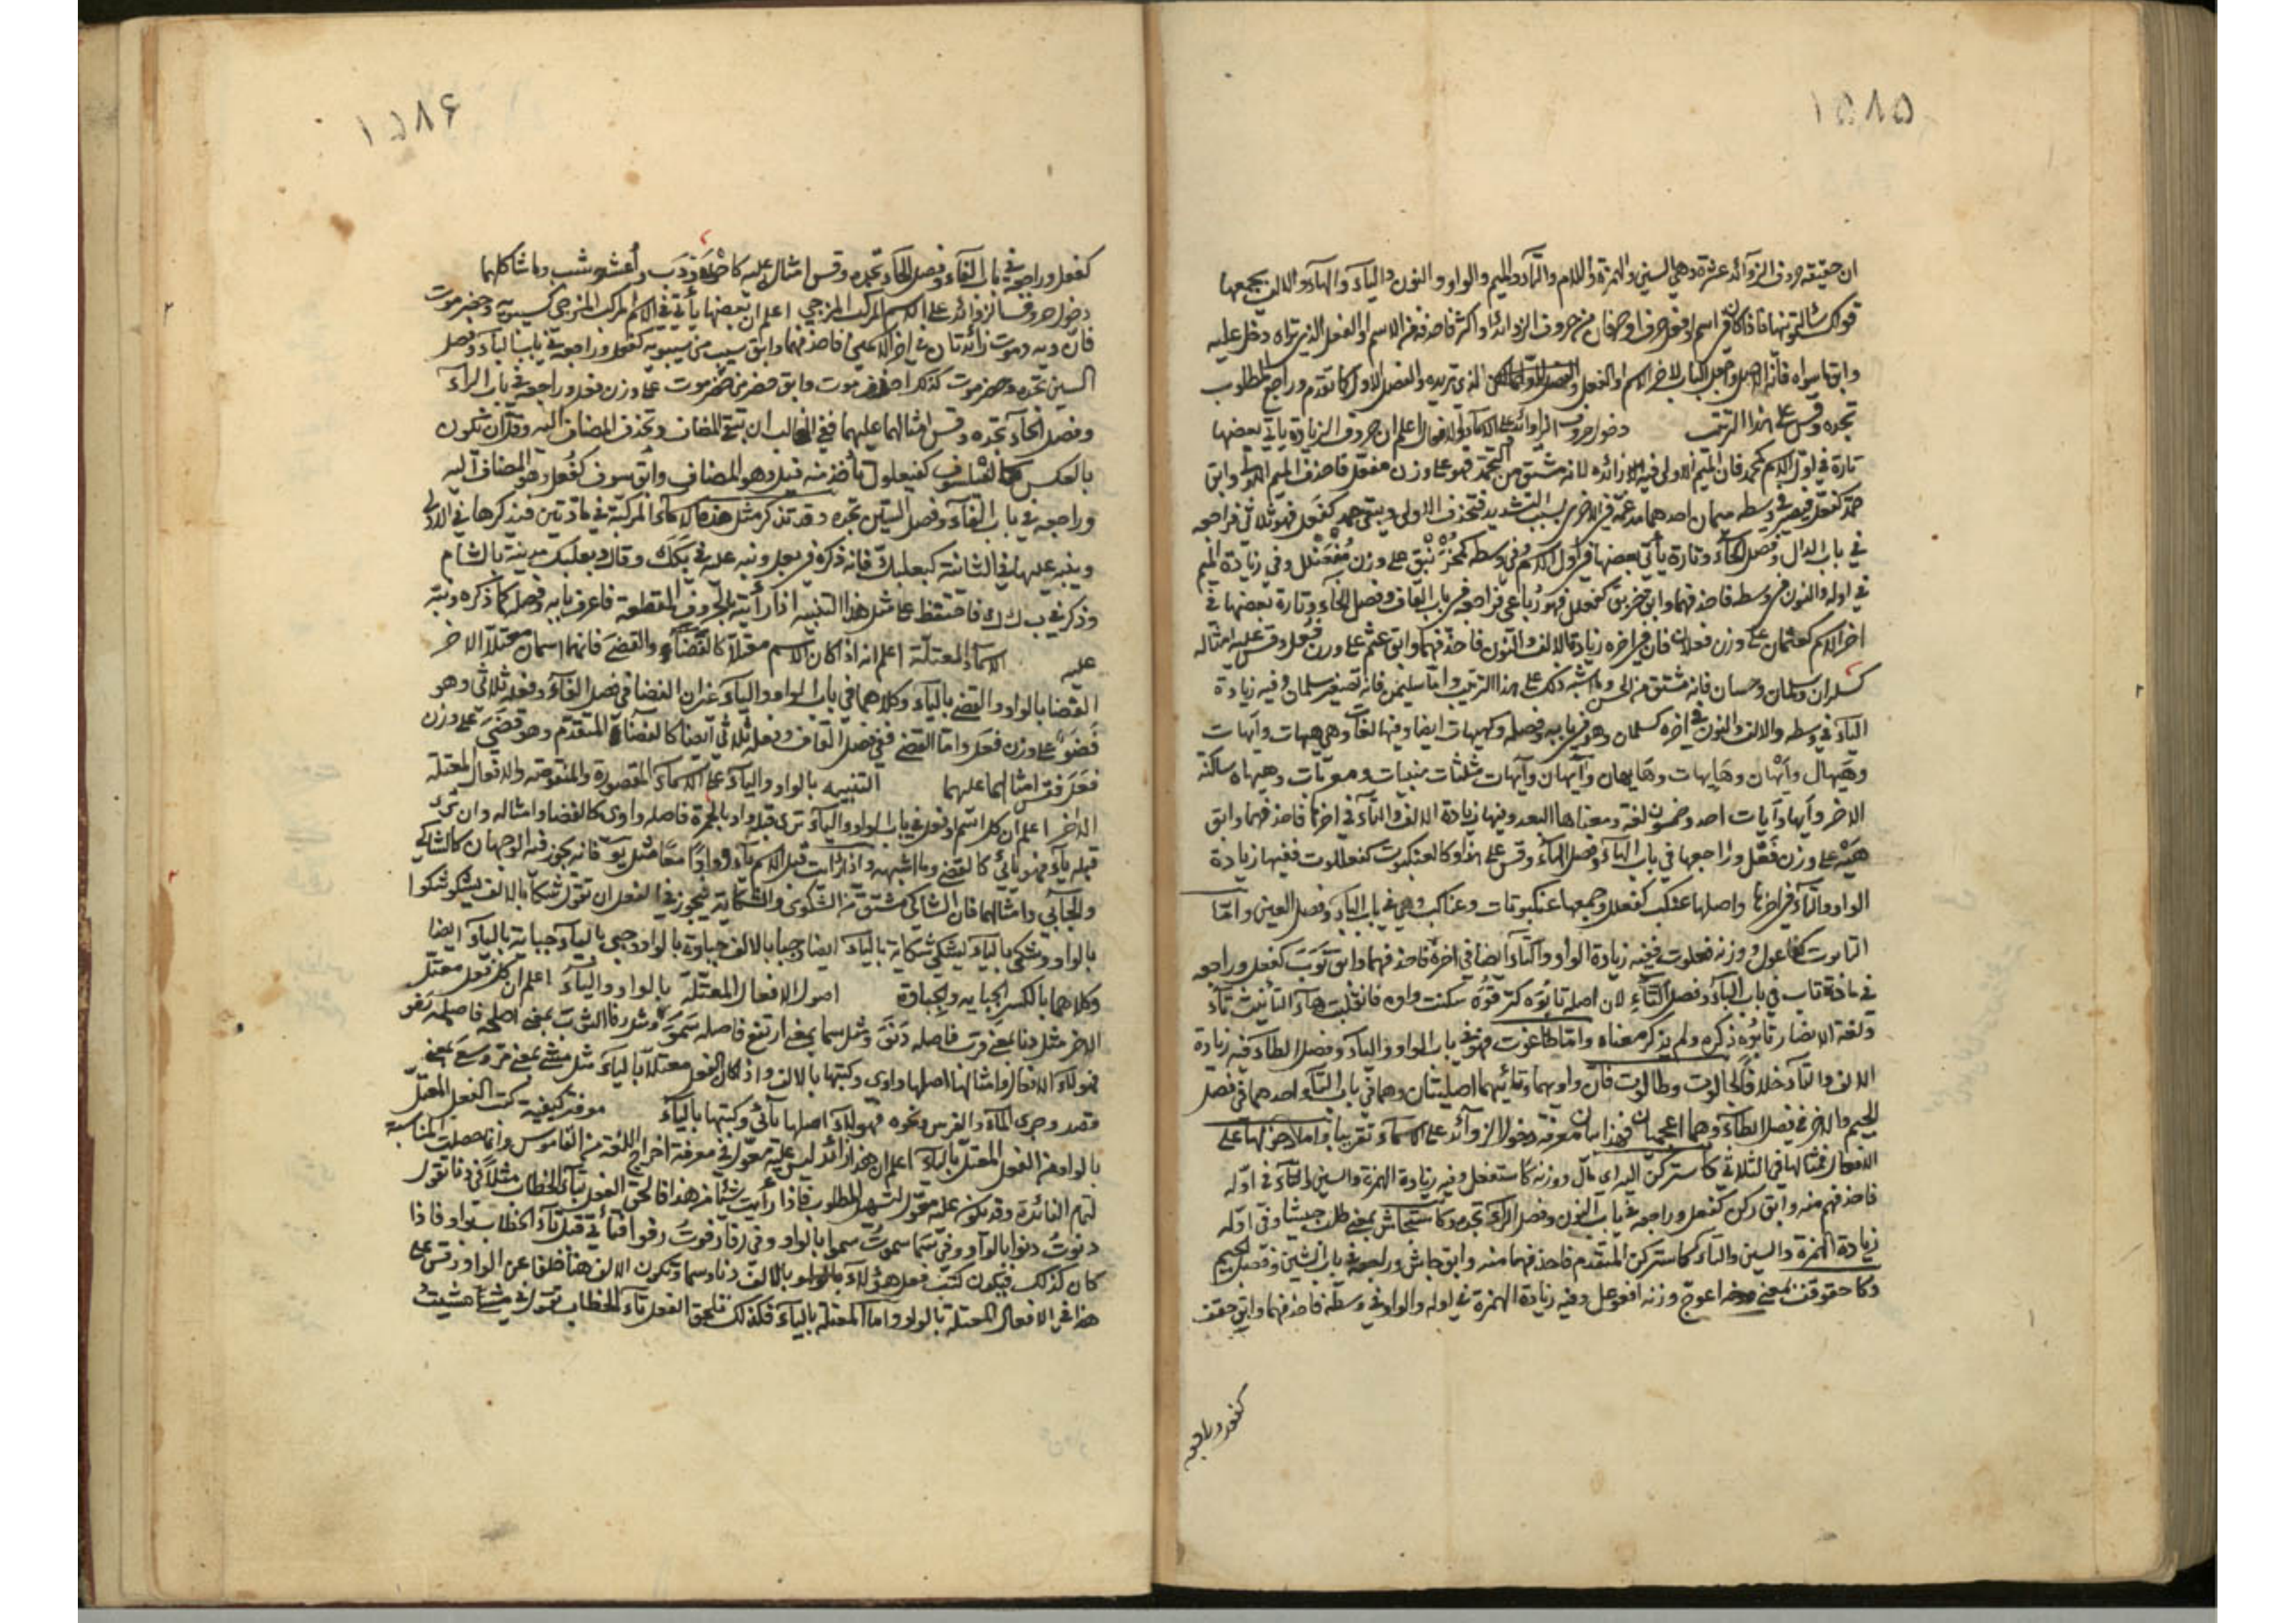 ١٥٨٥
ان حقيقة حروف الزوآئد عشرة وهي السين والهمزة واللام والتآء والميم والواو والنون والياء والهآء والالف يجمعها
قولك سالتمونيها فاذا كان في اسم او فعل حرف او حرفان من حروف الزوائد او اكثر فاحذفه من الاسم او الفعل الذي تراه دخل عليه
وابق ما سواه فانه الاصل واجعل الباب لاخر الاسم او الفعل والفصل الذي تريده والفصل للاول كما تقدم وراجع المطلوب
تجده وقس على هذا الترتيب دخول حروف الزوائد على الاسمآء والافعال اعلم ان حروف الزيادة ياتي بعضها
تارة في اول الاسم كمحمد فان الميم الاولى فيه زائدة لانه مشتق من التحمد فهو على وزن مفعل فاحذف الميم الاولى وابق
حمد كفعل فيصير في وسطه ميمان احدهما مدغمة في الاخرى بسبب التشديد فتحذف الاولى ويبقى حمد كفعل فهو ثلاثي فراجعه
في باب الدال وفصل الحآء وتارة يأتي بعضها في اول الاسم وفي وسطه كمخرنبق على وزن مفعنلل وفي زيادة الميم
في اوله والنون في وسطه فاحذفهما وابق خربق كفعلل فهو رباعي فراجعه في باب القاف وفصل الخاء وتارة بعضها في
اخر الاسم كعثمان على وزن فعلان فان في اخره زيادة الالف والنون فاحذفهما وابق عثم على وزن فعل وقس عليه امثاله
كسلران وسلمان وحسان فانه مشتق من الحس وما اشبه ذلك على هذا الترتيب واما سليمن فانه تصغير سلمان وفيه زيادة
اليآء في وسطه والالف والنون في اخره كسلمان وهو في بابه وفصله وكهيهات ايضا وفيها لغات وهي هيهات وآيهات
وهيهال وآيهان وهايهات وهايهان وآيهان وآيهات مثلثات مبنيات ومعربات وهيهاه ساكنة
الاخر وآيها وآيات احد وخمسون لغة ومعناها البعد وفيها زيادة الالف والتآء في اخرها فاحذفهما وابق
هيه على وزن فعل وراجعها في باب الهآء وفصل الهآء وقس على هذا وكالعنكبوت كفعللوت ففيها زيادة
الواو والتآء في اخرها واصلها عنكب كفعلل وجمعها عنكبوتات وعناكب وهي في باب البآء وفصل العين واما
التابوت كفاعول ووزنه فعلوت ففيه زيادة الواو والتآء ايضا في اخره فاحذفهما وابق توب كفعل وراجعه
في مادة تاب في باب البآء وفصل التآء لان اصله تابوة كترقوة سكنت واوه فانقلبت هآء التأنيث تآء
ولغة الانصار تابوه ذكره ولم يذكر معناه واما طاغوت فهو في باب الواو واليآء وفصل الطآء فيه زيادة
الالف والتآء خلافا لجالوت وطالوت فان واويهما وتائيهما اصليتان وهما في باب التآء واحدهما في فصل
الجيم والاخر في فصل الطآء وهما اعجميان فهذا بيان معرفة دخول الزوآئد على الاسمآء تقريبا واما دخولها على
الافعال فمثالها في الثلاثي كاستركن اليه اي مال ووزنه كاستفعل وفيه زيادة الهمزة والسين والتآء في اوله
فاحذفهم منه وابق ركن كفعل وراجعه في باب النون وفصل الرآء تجده وكاستجاش بمعنى طلب جيشا وفي اوله
زيادة الهمزة والسين والتآء كاستركن المتقدم فاحذفهما منه وابق جاش وراجعه في باب الشين وفصل الجيم
وكاحقوقف بمعنى اعوج وزنه افعوعل وفيه زيادة الهمزة في اوله والواو في وسطه فاحذفهما وابق حقف
كفعل وراجعه
١٥٨۶
كفعل وراجعه في باب الفآء وفصل الحآء تجده وقس امثال عليه كاحدودب واعشوشب وما شاكلهما
دخول حروف الزوائد على الاسم المركب المزجي اعلم ان بعضها يأتي في الاسم المركب المزجي كسيبويه وحضرموت
فان ويه وموت زائدتان في اخر الاعمى فاحذفهما وابق سيب من سيبويه كفعل وراجعه في باب البآء وفصل
السين تجده وحضرموت كذلك احذف موت وابق حضر من حضرموت على وزن فعل وراجعه في باب الرآء
وفصل الحآء تجده وقس امثالهما عليهما ففي الغالب ان تبقي المضاف وتحذف المضاف اليه وقل ان تكون
بالعكس كالفيلسوف كفيعلول تأخذ منه فيل وهو المضاف وابق سوف كفعل وهو المضاف اليه
وراجعه في باب الفآء وفصل السين تجده وقد تذكر مثل هذه الاسمآء المركبة في مادتين فيذكرها في الاولى
وينبه عليها في الثانية كبعلبك فانه ذكره في بعل ونبه عليه في بكك وقال وبعلبك مدينة بالشام
وذكر في ب ك ك فاحتفظ على مثل هذا التنبيه اذا رأيته بالحروف المقطعة فاعرف بابه وفصله كما ذكره ونبه
عليه الاسمآء المعتلة اعلم انه اذا كان الاسم معتلا كالفضآء والقضي فانهما اسمان معتلا الاخر
الفضا بالواو والقضي باليآء وكلاهما في باب الواو واليآء غير ان الفضا في فصل الفآء وفعله ثلاثي وهو
فضو على وزن فعل واما القضي ففي فصل القاف وفعله ثلاثي ايضا كالفضآء المتقدم وهو قضي على وزن
فعل فقس امثالهما عليهما التنبيه بالواو واليآء على الاسمآء المقصورة والمنقوصة والافعال المعتلة
الاخر اعلم ان كل اسم او فعل في باب الواو واليآء ترى قبله واو بالحمرة فاصله واوي كالفضا وامثاله وان ترى
قبله يآء فهو يائي كالقضي وما اشبهه واذا رأيت قبل الاسم يآء وواوا معا مثل يو فانه يجوز فيه الوجهان كالشاكي
والجابي وامثالهما فان الشاكي مشتق من الشكوى والشكاية فيجوز في الفعل ان تقول شكا بالالف يشكو شكوا
بالواو وشكى باليآء يشكي شكاية باليآء ايضا وجبا بالالف جباوة بالواو وجبى باليآء جباية باليآء ايضا
وكلاهما بالكسر الجبايه والجباوة اصول الافعال المعتلة بالواو واليآء اعلم ان كل فعل معتل
الاخر مثل دنا بمعنى قرب فاصله دنو ومثل سما بمعنى ارتفع فاصله سمو ومثل رفا الثوب بمعنى اصلحه فاصله رفو
فهولآء الافعال وامثالها اصلها واوي وكتبها بالالف واذا كان الفعل معتلا باليآء مثل مشى بمعنى مر وسعى بمعنى
قصد وجرى المآء والفرس ونحوه فهولآء اصلها يآئي وكتبها باليآء معرفة كيفية كتب الفعل المعتل
بالواو من الفعل المعتل باليآء اعلم ان هذا زائد ليس عليه معول في معرفة اخراج اللغة من القاموس وانما حصلت المناسبة
لتمام الفائدة وقد يكون عليه معول لتسهيل المطلوب فاذا رأيت شيئا من هذا فالحق الفعل بتآء الخطاب مثلا في دنا تقول
دنوت دنوا بالواو وفي سما سموت سموا بالواو وفي رفا رفوت رفوا فتأتي قبل تآء الخطاب بواو فاذا
كان كذلك فيكون كتب فعل هؤلآء بالالف دنا وسما وتكون الالف هنا خلفا عن الواو وقس على
هذا في الافعال المعتلة بالواو واما المعتلة باليآء فكذلك تلحق الفعل تآء الخطاب تقول في مشى مشيت